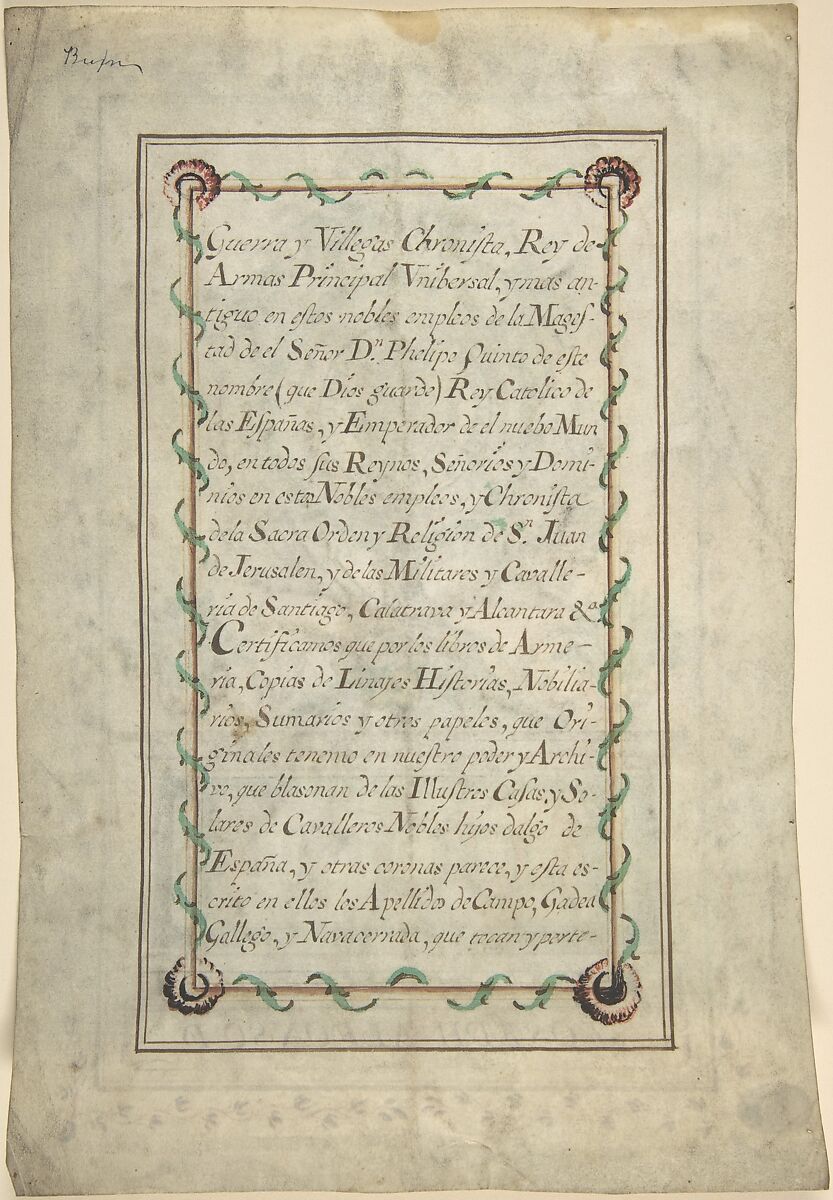 Guerra y Villegas Chronista, Rey de
Armas Principal Vnibersal, y mas an-
tiguo en estos nobles empleos de la Mages-
tad de el Señor Dn. Phelipe Quinto de este
nombre (que Dios guarde) Rey Catolico de
las Españas, y Emperador de el nuebo Mun
do, en todos sus Reynos, Señorios y Domi-
nios en estos Nobles empleos, y Chronista
de la Sacra Orden y Religion de Sn. Juan
de Jerusalen, y de las Militares y Cavalle-
ria de Santiago, Calatrava y Alcantara &a.
Certificamos que por los libros de Arme-
ria, Copias de Linajes Historias, Nobilia-
rios, Sumarios y otros papeles, que Ori-
ginales tenemo en nuestro poder y Archi-
vo, que blasonan de las Illustres Casas, y So-
lares de Cavalleros Nobles hijos dalgo de
España, y otras coronas parece, y esta es-
crito en ellos los Apellidos de Campo, Gadea
Gallego, y Navacerrada, que tocan y perte-